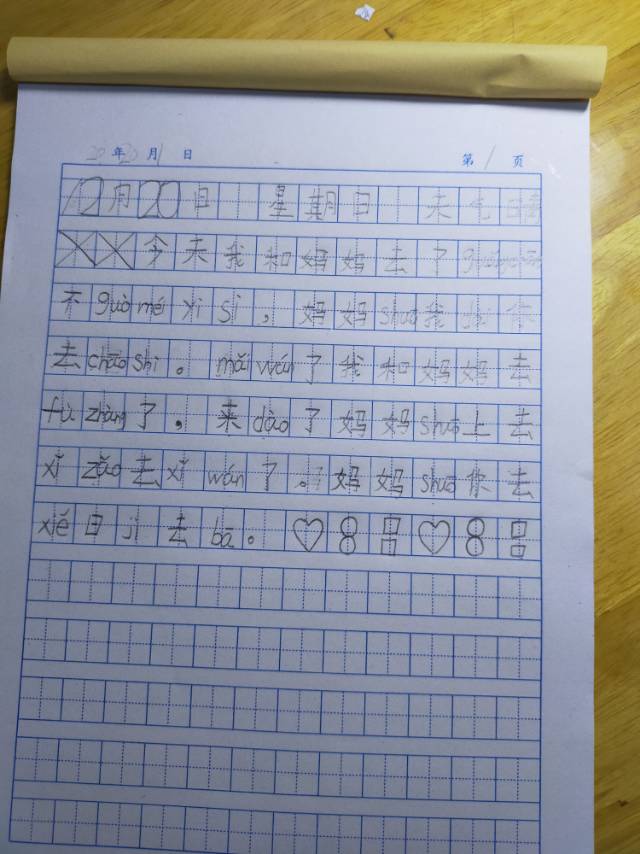 2020年 月 日 第1页
12月20日 星期日 天气晴
今天我和妈妈去了
不guò mé yì si，妈妈shuō我 你
去chāo shì。mǎi wán了我和妈妈去
fù zhàng了。来dào了妈妈shuō上去
xǐ zǎo去xǐ wán了。妈妈shuō你去
xiě日jì去bā。